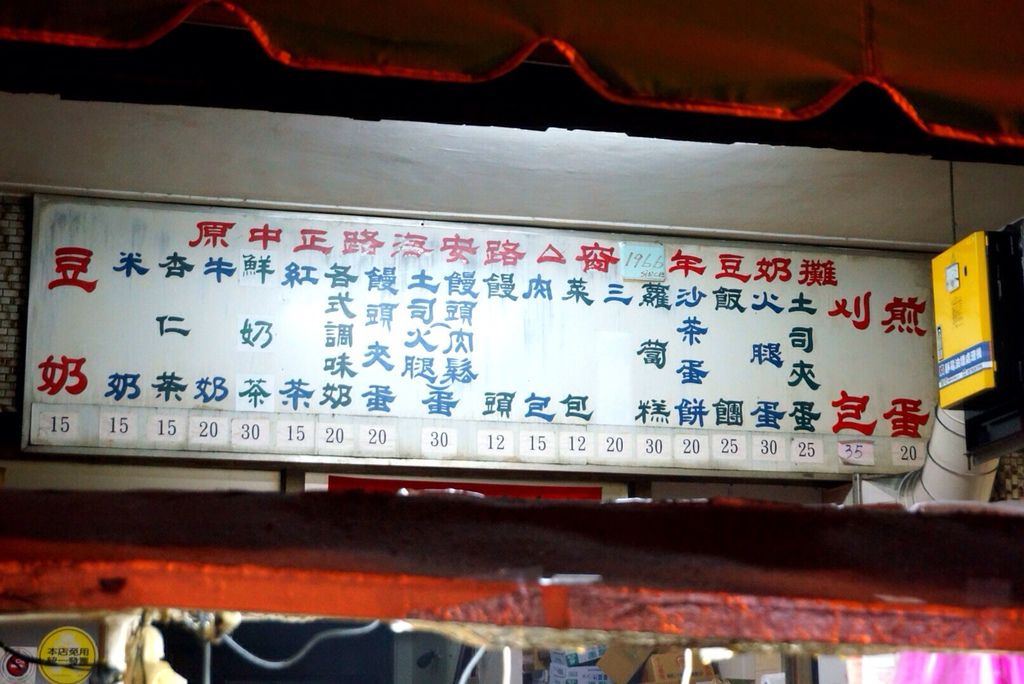 原中正路海安路
1966
SINCE
年豆奶攤
豆奶
米奶
杏仁茶
牛奶
鮮奶茶
紅茶
各式調味奶
饅頭夾蛋
土司(火腿)蛋
饅頭肉鬆
饅頭
肉包
菜包
三
蘿蔔糕
沙茶蛋餅
飯糰
火腿蛋
土司夾蛋
刈包
煎蛋
15 15 15 20 30 15 20 20 30 12 15 12 20 30 20 25 30 25 35 20
本店免用
統一發票